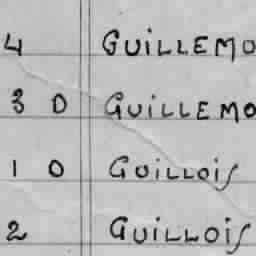 4 GUILLEMO
3 0 GUILLEMO
1 0 GUILLOIS
2 GUILLOIS